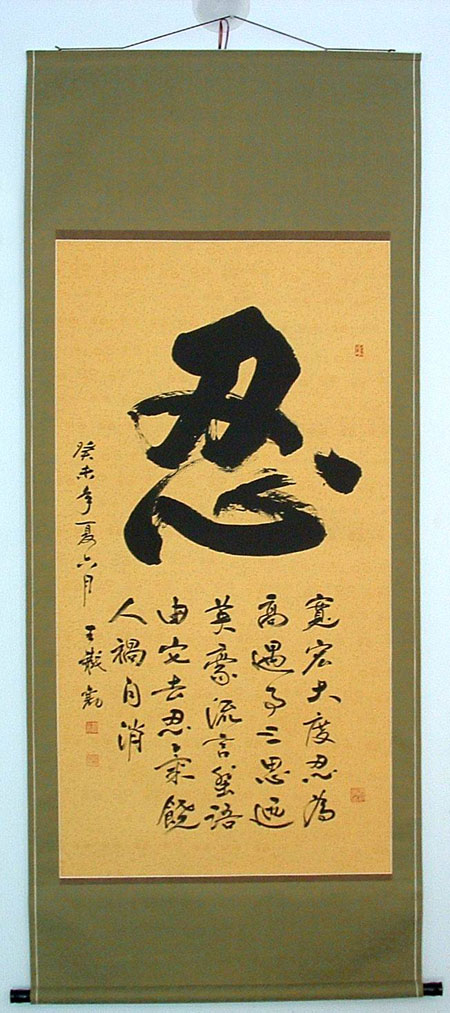 忍
寬宏大度忍為
高遇事三思迺
英豪流言蜚語
由它去忍氣饒
人禍自消
癸未年夏六月 王